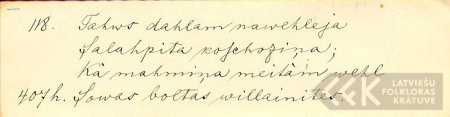 118. Tæhws dahlam nawehleja
Salahpita koschoziņa;
Kà mahmiņa meitàm wehl
407h. Sowas boltas willainites.
LATVIEŠU
FOLKLORAS
KRĀTUVE